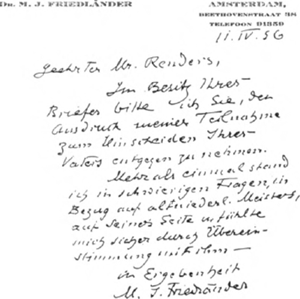 Dr. M. J. FRIEDLÄNDER
AMSTERDAM,
BEETHOVENSTRAAT
TELEFOON 91559
11. IV. 56
Geehrter Mr. Renders,
Im Besitz Ihres
Briefes bitte ich Sie, den
Ausdruck meiner Teilnahme
zum Hinscheiden Ihres
Vaters entgegen zu nehmen.
Mehr als einmal stand
ich in schwierigen Fragen, in
Bezug auf altniederl. Meisters,
auf seiner Seite u. fühlte
mich sicher durch Überein-
stimmung mit ihm —
in Ergebenheit
M. J. Friedländer